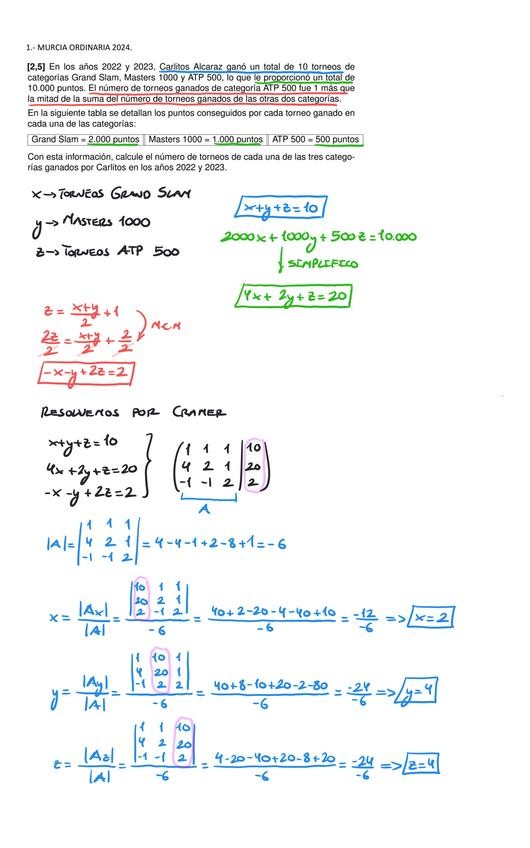 1.- MURCIA ORDINARIA 2024.
[2,5] En los años 2022 y 2023, Carlitos Alcaraz ganó un total de 10 torneos de
categorías Grand Slam, Masters 1000 y ATP 500, lo que le proporcionó un total de
10.000 puntos. El número de torneos ganados de categoría ATP 500 fue 1 más que
la mitad de la suma del número de torneos ganados de las otras dos categorías.
En la siguiente tabla se detallan los puntos conseguidos por cada torneo ganado en
cada una de las categorías:
Grand Slam = 2.000 puntos | Masters 1000 = 1.000 puntos | ATP 500 = 500 puntos
Con esta información, calcule el número de torneos de cada una de las tres catego-
rías ganados por Carlitos en los años 2022 y 2023.
x → TORNEOS GRAND SLAM
y → MASTERS 1000
z → TORNEOS ATP 500
x+y+z=10
2000x+1000y+500z=10.000
↓ SIMPLIFICO
4x+2y+z=20
z = x+y/2 + 1
2z/2 = x+y/2 + 2/2 M.C.M
-x-y+2z=2
RESOLVEMOS POR CRAMER
x+y+z=10
4x+2y+z=20
-x-y+2z=2
1 1 1 | 10
4 2 1 | 20
-1 -1 2 | 2
A
|A| = |1 1 1; 4 2 1; -1 -1 2| = 4-4-1+2-8+1=-6
x = |Ax|/|A| = |10 1 1; 20 2 1; 2 -1 2|/-6 = 40+2-20-4-40+10/-6 = -12/-6 => x=2
y = |Ay|/|A| = |1 10 1; 4 20 1; -1 2 2|/-6 = 40+8-10+20-2-80/-6 = -24/-6 => y=4
z = |Az|/|A| = |1 1 10; 4 2 20; -1 -1 2|/-6 = 4-20-40+20-8+20/-6 = -24/-6 => z=4